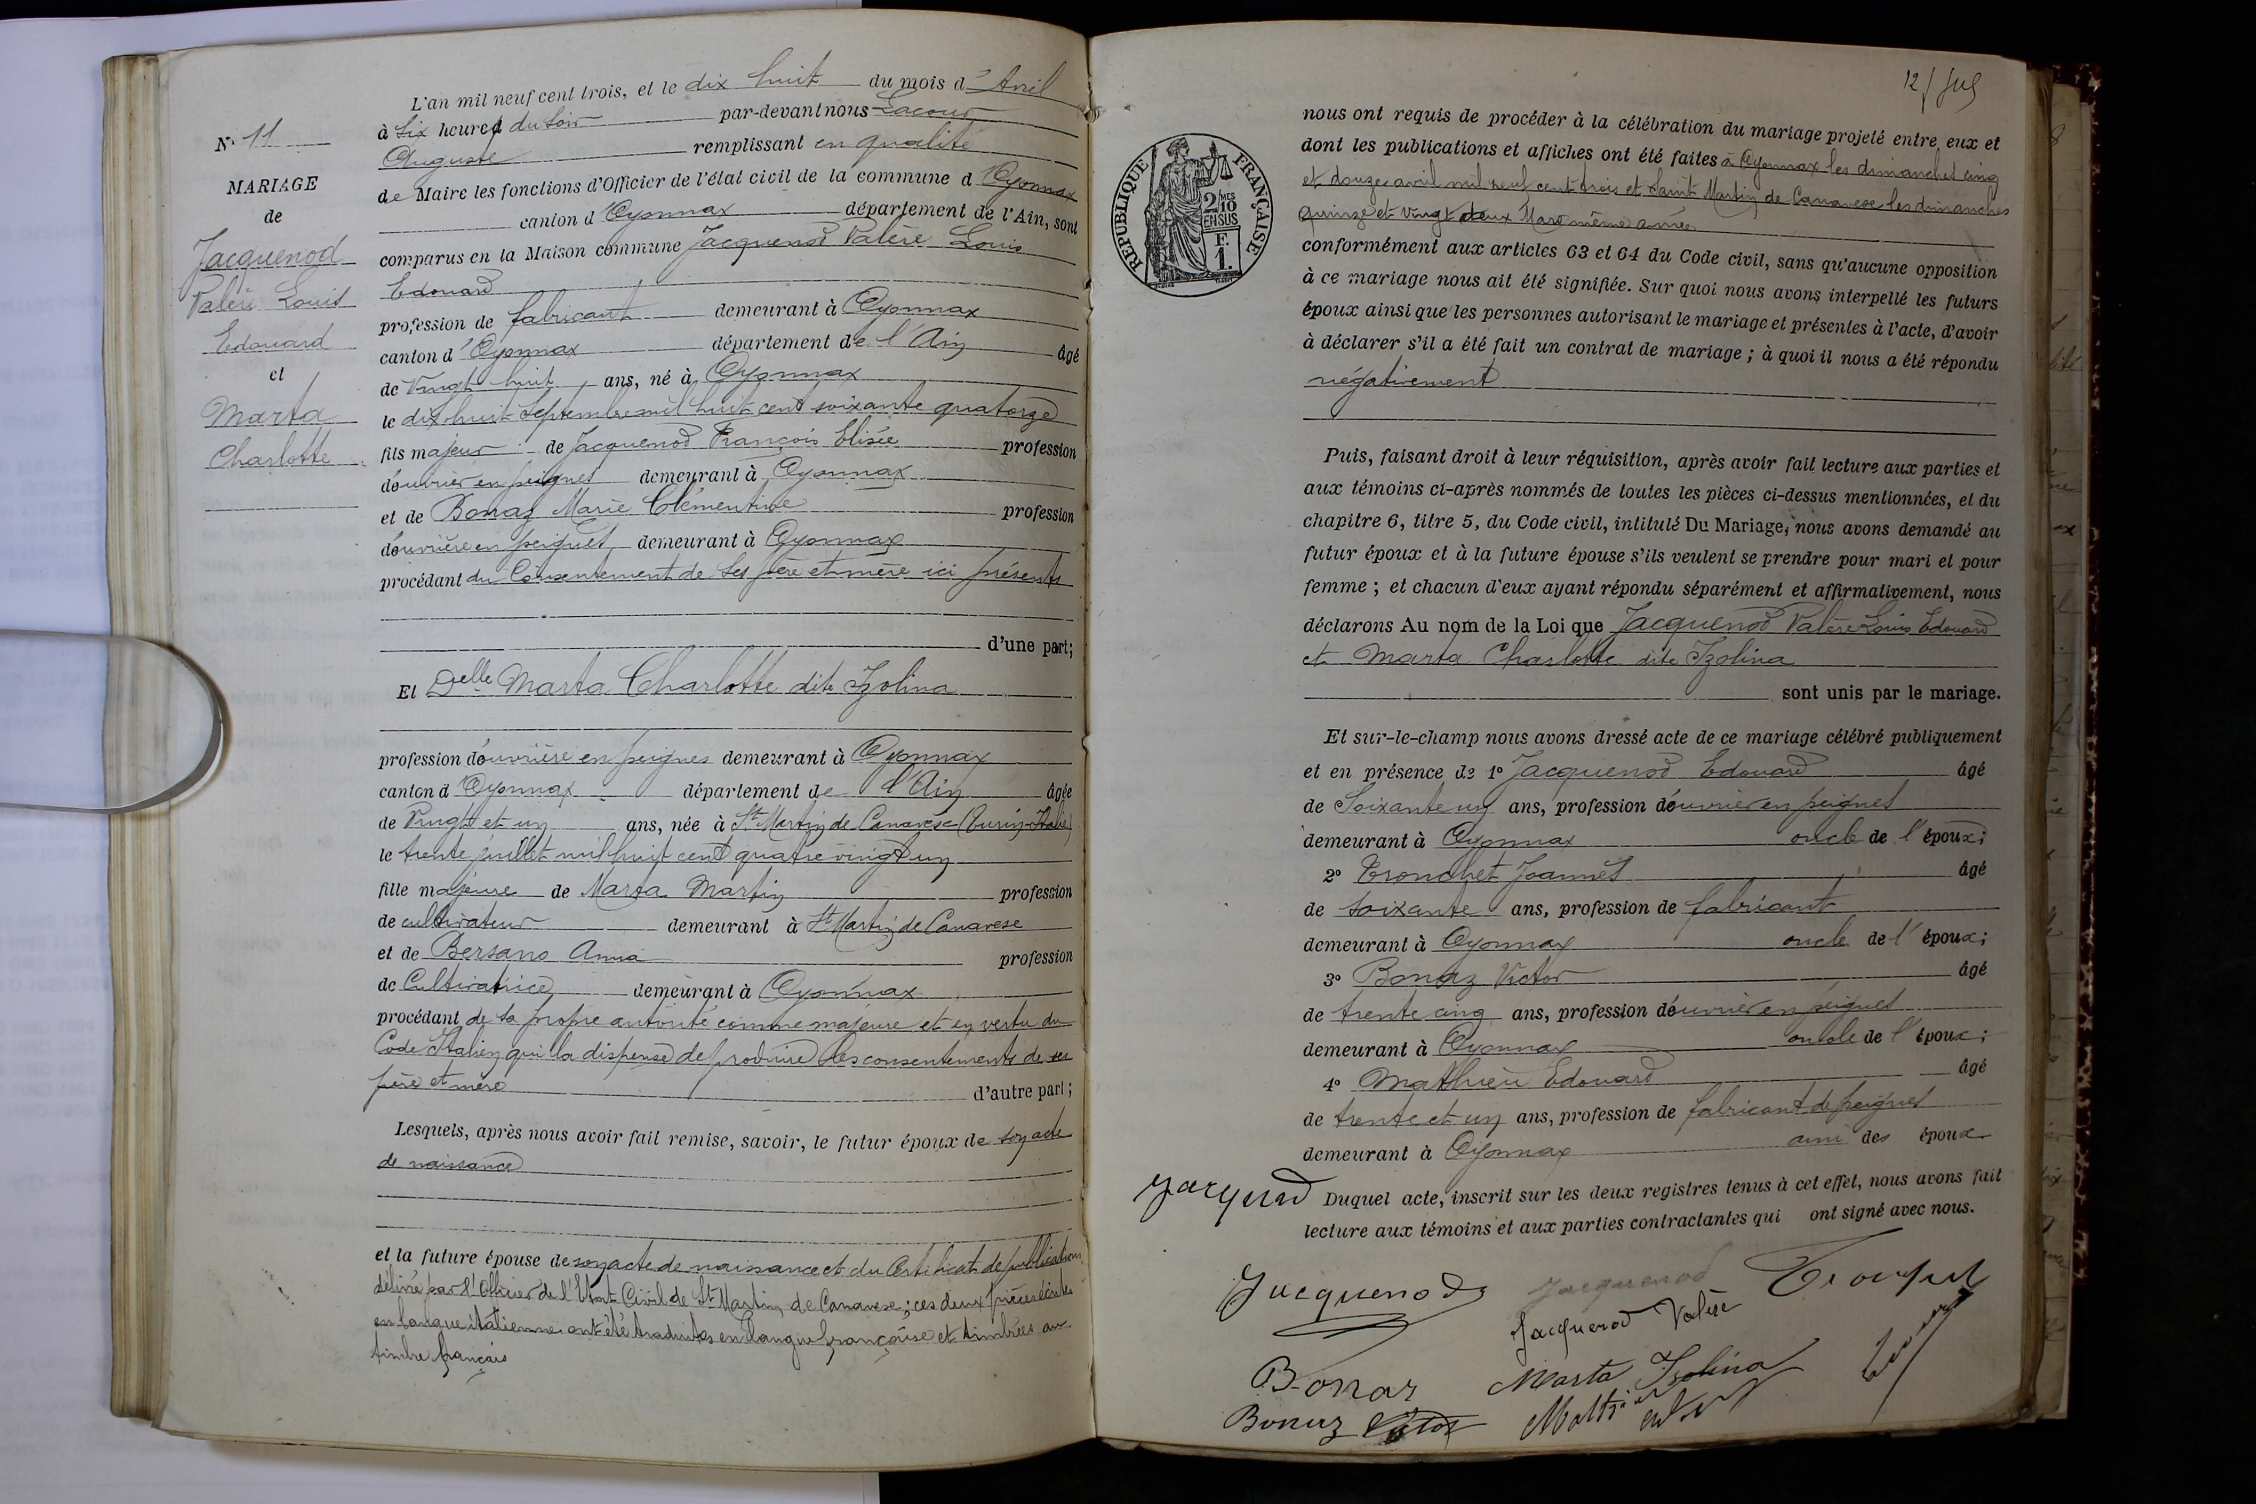 L'an mil neuf cent trois, et le dix huit du mois d'Avril
à six heures du soir par-devant nous Lacour
Auguste remplissant en qualité
de Maire les fonctions d'Officier de l'état civil de la commune d'Oyonnax
canton d'Oyonnax département de l'Ain, sont
comparus en la Maison commune Jacquenod Valère Louis
Edouard
profession de fabricant demeurant à Oyonnax
canton d'Oyonnax département de l'Ain âgé
de Vingt huit ans, né à Oyonnax
le dix huit Septembre mil huit cent soixante quatorze
fils majeur de Jacquenod François Elisée profession
d'ouvrier en peignes demeurant à Oyonnax
et de Bonaz Marie Clémentine profession
d'ouvrière en peignes demeurant à Oyonnax
procédant du Consentement de ses père et mère ici présents
d'une part;
Et Delle Marta Charlotte dite Izolina
profession d'ouvrière en peignes demeurant à Oyonnax
canton d'Oyonnax département de l'Ain âgée
de Vingt et un ans, née à St Martin de Canavese (Turin-Italie)
le trente juillet mil huit cent quatre vingt un
fille majeure de Marta Martin profession
de cultivateur demeurant à St Martin de Canavese
et de Bersano Anna profession
de Cultivatrice demeurant à Oyonnax
procédant de sa propre autorité comme majeure et en vertu du
Code Italien qui la dispense de produire les consentements de ses
père et mère d'autre part;
Lesquels, après nous avoir fait remise, savoir, le futur époux de son acte
de naissance
et la future épouse de son acte de naissance et du Certificat de publications
délivré par l'Officier de l'Etat Civil de St Martin de Canavese; ces deux pièces écrites
en langue italienne ont été traduites en langue française et timbrées au
timbre français
No 11
MARIAGE
de
Jacquenod
Valère Louis
Edouard
et
Marta
Charlotte
12/
RÉPUBLIQUE FRANÇAISE
2/10MES
EN SUS
F.
1.
nous ont requis de procéder à la célébration du mariage projeté entre eux et
dont les publications et affiches ont été faites à Oyonnax les dimanches cinq
et douze avril mil neuf cent trois et Saint Martin de Canavese les dimanches
quinze et vingt deux Mars même année
conformément aux articles 63 et 64 du Code civil, sans qu'aucune opposition
à ce mariage nous ait été signifiée. Sur quoi nous avons interpellé les futurs
époux ainsi que les personnes autorisant le mariage et présentes à l'acte, d'avoir
à déclarer s'il a été fait un contrat de mariage; à quoi il nous a été répondu
négativement
Puis, faisant droit à leur réquisition, après avoir fait lecture aux parties et
aux témoins ci-après nommés de toutes les pièces ci-dessus mentionnées, et du
chapitre 6, titre 5, du Code civil, intitulé Du Mariage, nous avons demandé au
futur époux et à la future épouse s'ils veulent se prendre pour mari et pour
femme; et chacun d'eux ayant répondu séparément et affirmativement, nous
déclarons Au nom de la Loi que Jacquenod Valère Louis Edouard
et Marta Charlotte dite Izolina
sont unis par le mariage.
Et sur-le-champ nous avons dressé acte de ce mariage célébré publiquement
et en présence de 1o Jacquenod Edouard âgé
de Soixante un ans, profession d'ouvrier en peignes
demeurant à Oyonnax oncle de l'époux;
2o Tronchet Joannès âgé
de soixante ans, profession de fabricant
demeurant à Oyonnax oncle de l'époux;
3o Bonaz Victor âgé
de trente cinq ans, profession d'ouvrier en peignes
demeurant à Oyonnax oncle de l'époux;
4o Mathieu Edouard âgé
de trente et un ans, profession de fabricant de peignes
demeurant à Oyonnax ami des époux
Duquel acte, inscrit sur les deux registres tenus à cet effet, nous avons fait
lecture aux témoins et aux parties contractantes qui ont signé avec nous.
Jacquenod Jacquenod
Jacquenod Valère
Bonaz Marta Izolina
Bonaz Victor